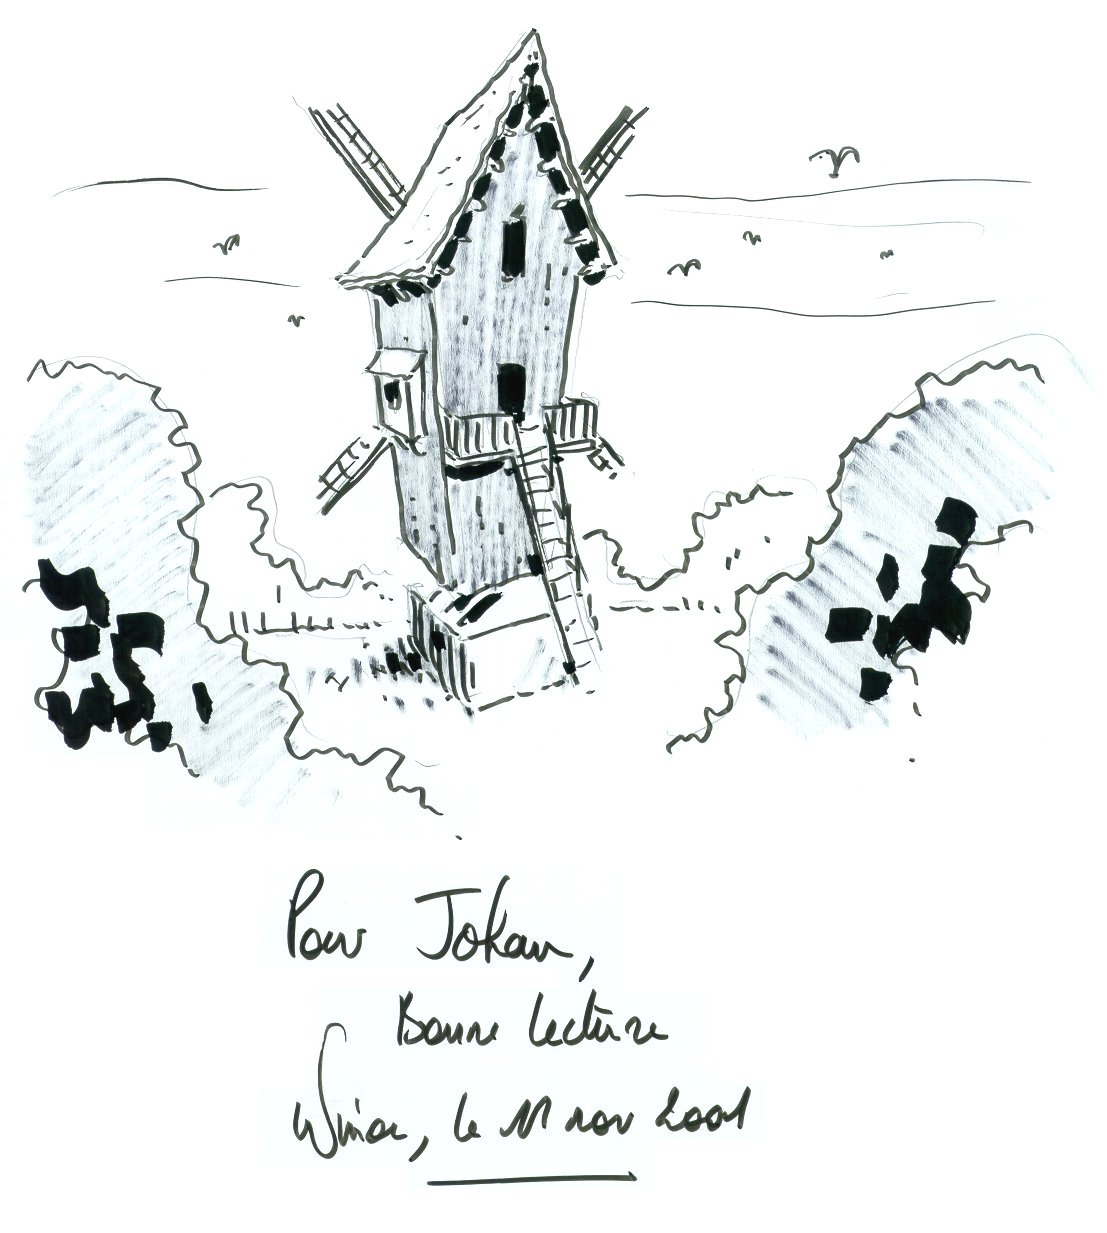 Pour Johan,
Bonne lecture
le 11 nov 2001